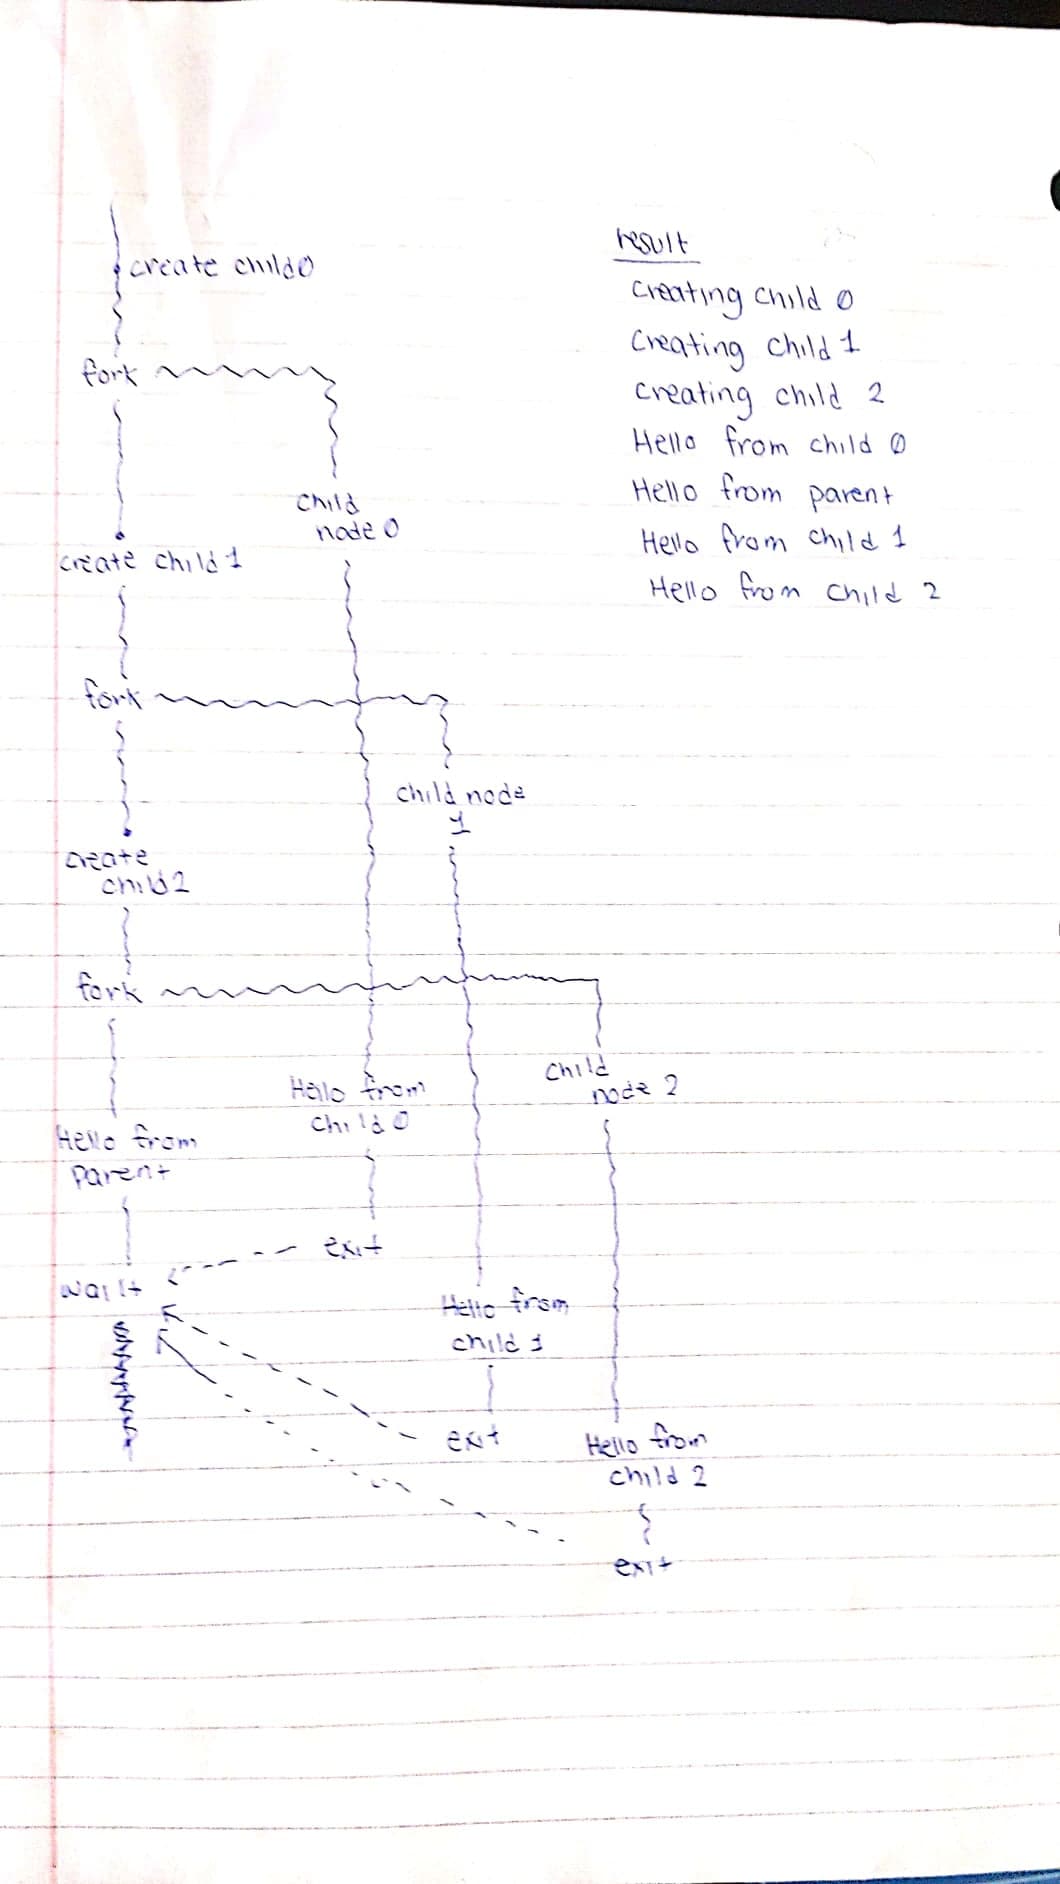 create child0
fork
child
node 0
create child 1
fork
child node
1
create
child2
fork
child
node 2
Hello from
child 0
Hello from
parent
exit
wait
Hello from
child 1
exit
Hello from
child 2
exit
result
creating child 0
Creating child 1
creating child 2
Hello from child 0
Hello from parent
Hello from child 1
Hello from child 2